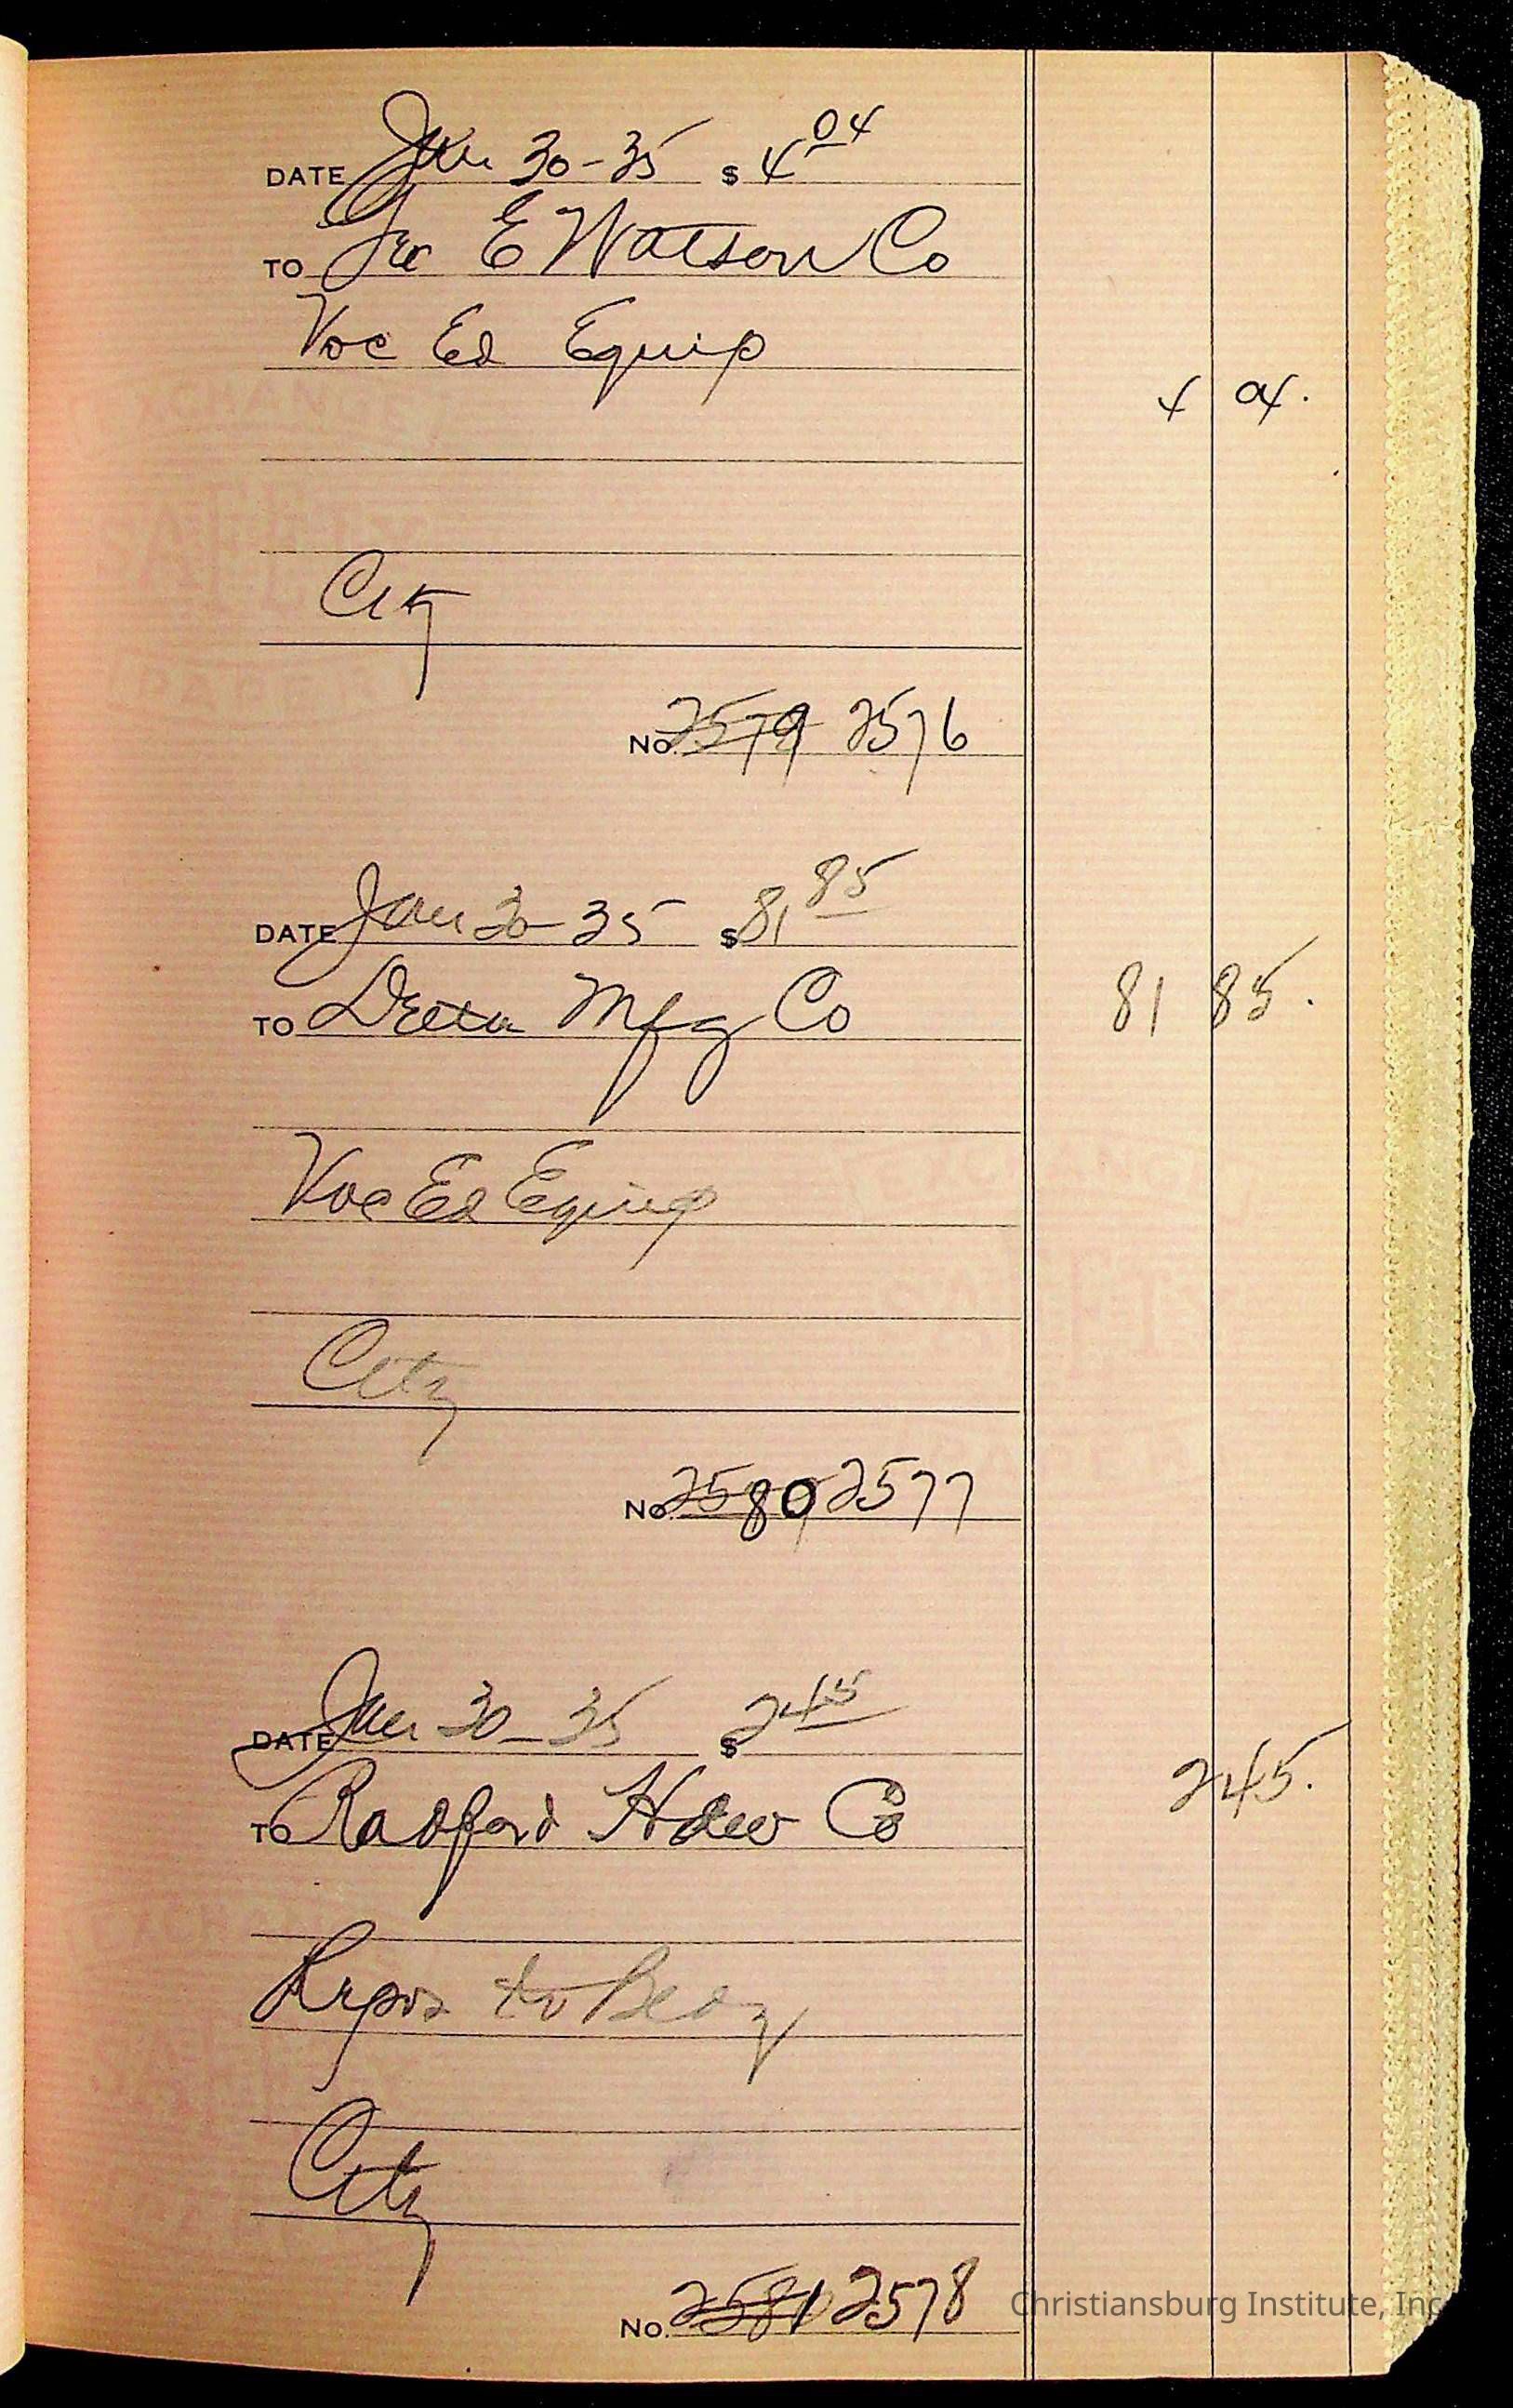 DATE Jan 30-35 $ 4 04
TO E Watson Co
Voc Ed Equip
4 04.
City
No. 2579 2576
DATE Jan 30-35 $ 81 85
TO Delta Mfg Co
81 85.
Voc Ed Equip
City
No. 2580 2577
DATE Jan 30-35 $ 2 45
2 45.
TO Radford Hdw Co
to Bldg
City
No. 2581 2578
Christiansburg Institute, Inc